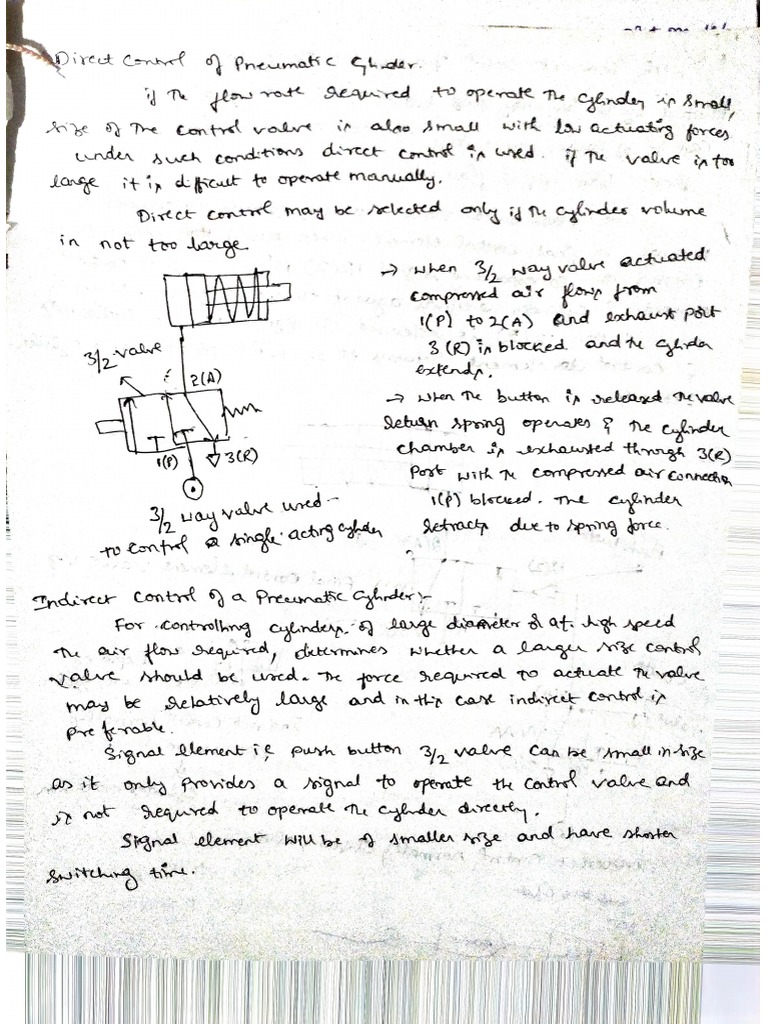 Direct Control of Pneumatic Cylinder.
if the flow rate required to operate the cylinder is small,
size of the control valve is also small with low actuating forces
under such conditions direct control is used. if the valve is too
large it is difficult to operate manually.
Direct control may be selected only if the cylinder volume
is not too large.
3/2 valve
2(A)
1(P)
3(R)
3/2 way valve used -
to control a single acting cylinder
→ when 3/2 way valve actuated
compressed air flows from
1(P) to 2(A) and exhaust port
3 (R) is blocked and the cylinder
extends.
→ when the button is released the valve
return spring operates & the cylinder
chamber is exhausted through 3(R)
port with the compressed air connection
1(P) blocked. The cylinder
retracts due to spring force.
Indirect Control of a Pneumatic Cylinder:-
For controlling cylinders of large diameter & at high speed
the air flow required, determines whether a larger size control
valve should be used. The force required to actuate the valve
may be relatively large and in this case indirect control is
preferable.
Signal element ie push button 3/2 valve can be small in size
as it only provides a signal to operate the control valve and
is not required to operate the cylinder directly.
Signal element will be of smaller size and have shorter
switching time.